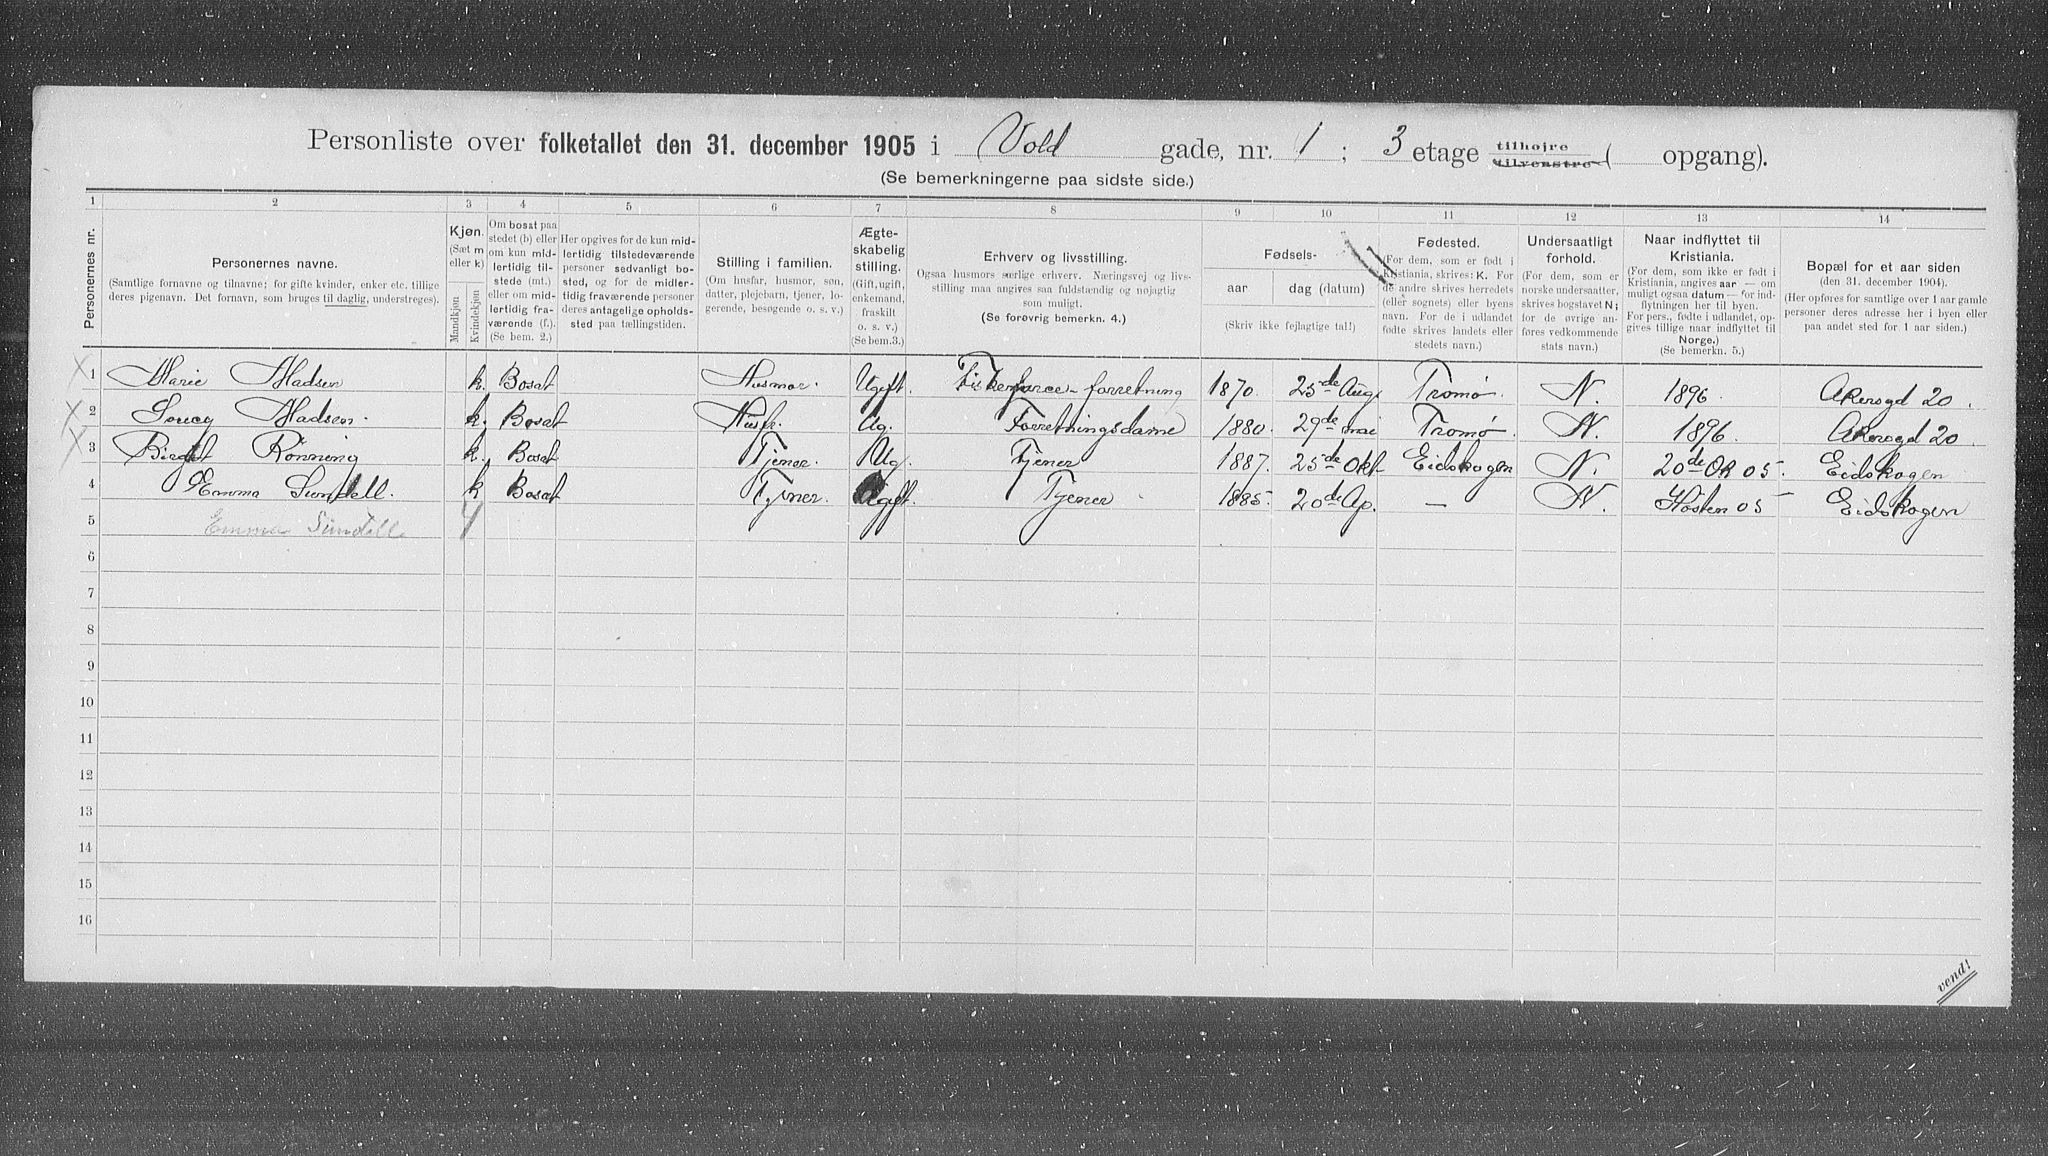 Personliste over folketallet den 31. december 1905 i Vold gade, nr. 1 ; 3 etage tilhøjre tilvenstre ( opgang).
(Se bemerkningerne paa sidste side.)
1 2 3 4 5 6 7 8 9 10 11 12 13 14
Personernes nr.
Personernes navne.
(Samtlige fornavne og tilnavne; for gifte kvinder, enker etc. tillige
deres pigenavn. Det fornavn, som bruges til daglig, understreges).
Kjøn.
(Sæt m
eller k)
Mandkjøn
Kvindekjøn
Om bosat paa
stedet (b) eller
om kun mid-
lertidig til-
stede (mt.)
eller om mid-
lertidig fra-
værende (f.).
(Se bem. 2.)
Her opgives for de kun mid-
lertidig tilstedeværende
personer sedvanligt bo-
sted, og for de midler-
tidig fraværende personer
deres antagelige opholds-
sted paa tællingstiden.
Stilling i familien.
(Om husfar, husmor, søn,
datter, plejebarn, tjener, lo-
gerende, besøgende o. s. v.)
Ægte-
skabelig
stilling.
(Gift, ugift,
enkemand,
fraskilt
o. s. v.)
(Se bem. 3.)
Erhverv og livsstilling.
Ogsaa husmors særlige erhverv. Næringsvej og livs-
stilling maa angives saa fuldstændig og nøjagtig
som muligt.
(Se forøvrig bemerkn. 4.)
Fødsels-
aar
dag (datum)
(Skriv ikke fejlagtige tal!)
Fødested.
(For dem, som er født i
Kristiania, skrives: K. For
de andre skrives herredets
(eller sognets) eller byens
navn. For de i udlandet
fødte skrives landets eller
stedets navn.)
Undersaatligt
forhold.
(For dem, som er
norske undersaatter,
skrives bogstavet N;
for de øvrige an-
føres vedkommende
stats navn.)
Naar indflyttet til
Kristiania.
(For dem, som ikke er født i
Kristiania, angives aar — om
muligt ogsaa datum — for ind-
flytningen her til byen.
For pers., fødte i udlandet, op-
gives tillige naar indflyttet til
Norge.)
(Se bemerkn. 5.)
Bopæl for et aar siden
(den 31. december 1904).
(Her opføres for samtlige over 1 aar gamle
personer deres adresse her i byen eller
paa andet sted for 1 aar siden.)
1 Marie Madsen k. Bosat Husmor. Ugift. forretning 1870. 25de Aug. Tromø. N. 1896. Akersgd 20.
2 Madsen. k. Bosat Husfr. Ug. Forretningsdame 1880. 29de mai Tromø. N. 1896. Akersgd 20.
3 Birgit Rönning k. Bosat Tjener. Ug. Tjener 1887. 25de Okt Eidskogen N. 20de Ok 05. Eidskogen
4 Emma Sundell. k Bosat Tjener. Ugift. Tjener 1885. 20de Ap. — N. Høsten 05 Eidskogen
5 Emma Sundell
6
7
8
9
10
11
12
13
14
15
16
vend!